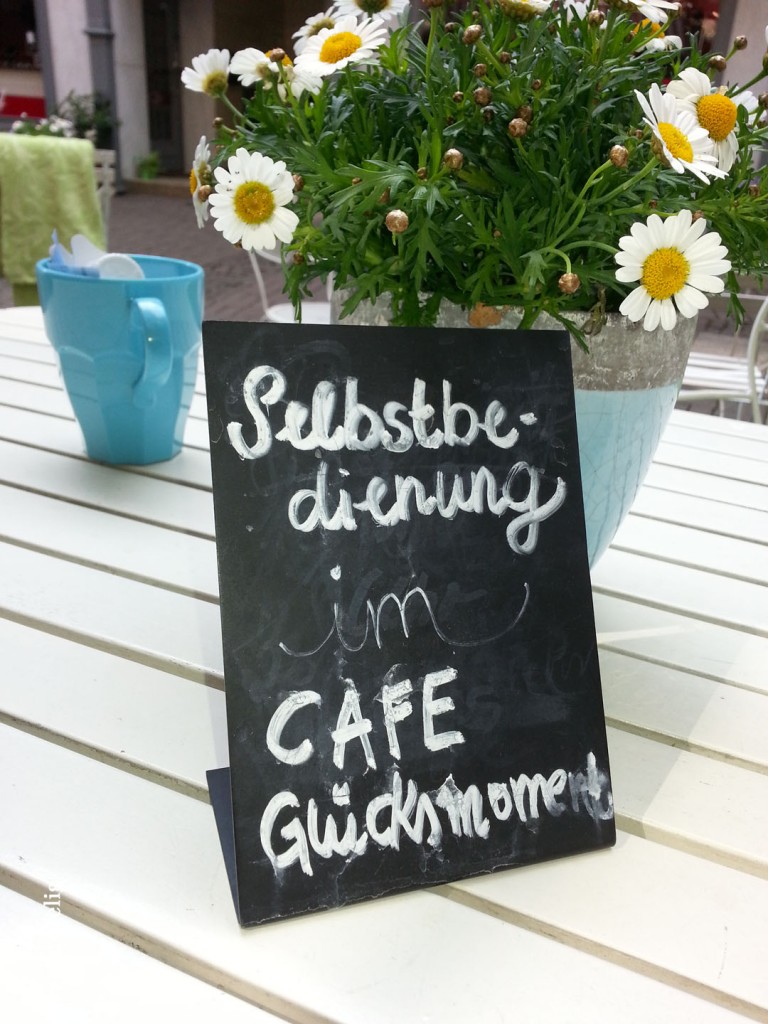 Selbstbe-
dienung
im
CAFE
Glücksmoment